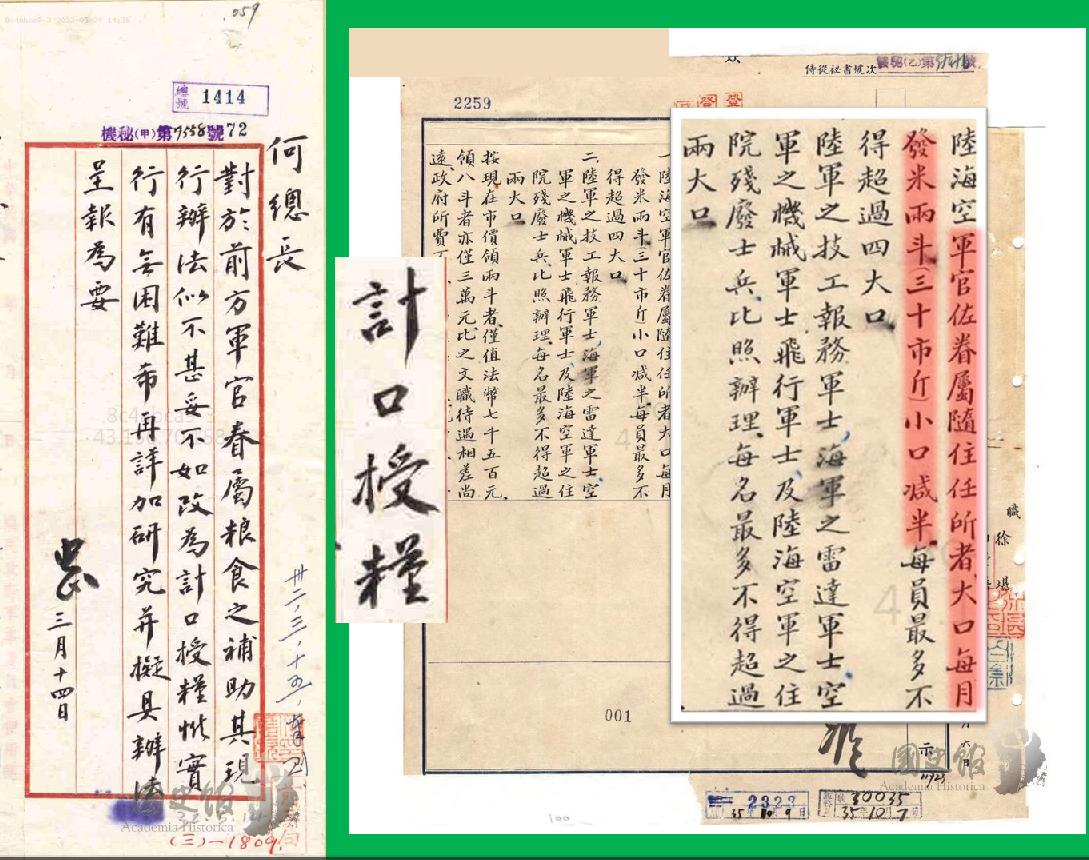 059
總號 1414
機秘(甲)第9558號 72
何總長
對於前方軍官眷屬粮食之補助其現
行辦法似不甚妥不如改為計口授糧惟實
行有無困難希再詳加研究并擬具辦法
呈報為要
三月十四日
卅二、三、十五、
(三)-1809
國史館
Academia Historica
計口授糧
2259
侍從秘書號次
一、陸海空軍官佐眷屬隨住任所者大口每月
發米兩斗三十市斤小口减半每員最多不
得超過四大口
二、陸軍之技工報務軍士、海軍之雷達軍士、空
軍之機械軍士飛行軍士、及陸海空軍之住
院殘廢士兵、比照辦理、每名最多不得超過
兩大口
按現在市價領兩斗者、僅值法幣七千五百元、
領八斗者亦僅三萬元比之文職待遇相差尚
遠、政府所費
陸海空軍官佐眷屬隨住任所者大口每月
發米兩斗(三十市斤)小口减半每員最多不
得超過四大口
陸軍之技工報務軍士、海軍之雷達軍士、空
軍之機械軍士飛行軍士、及陸海空軍之住
院殘廢士兵、比照辦理、每名最多不得超過
兩大口
職徐堪
示
001
2323
35 10 9
30035
35.10.7
100
國史館
Academia Historica